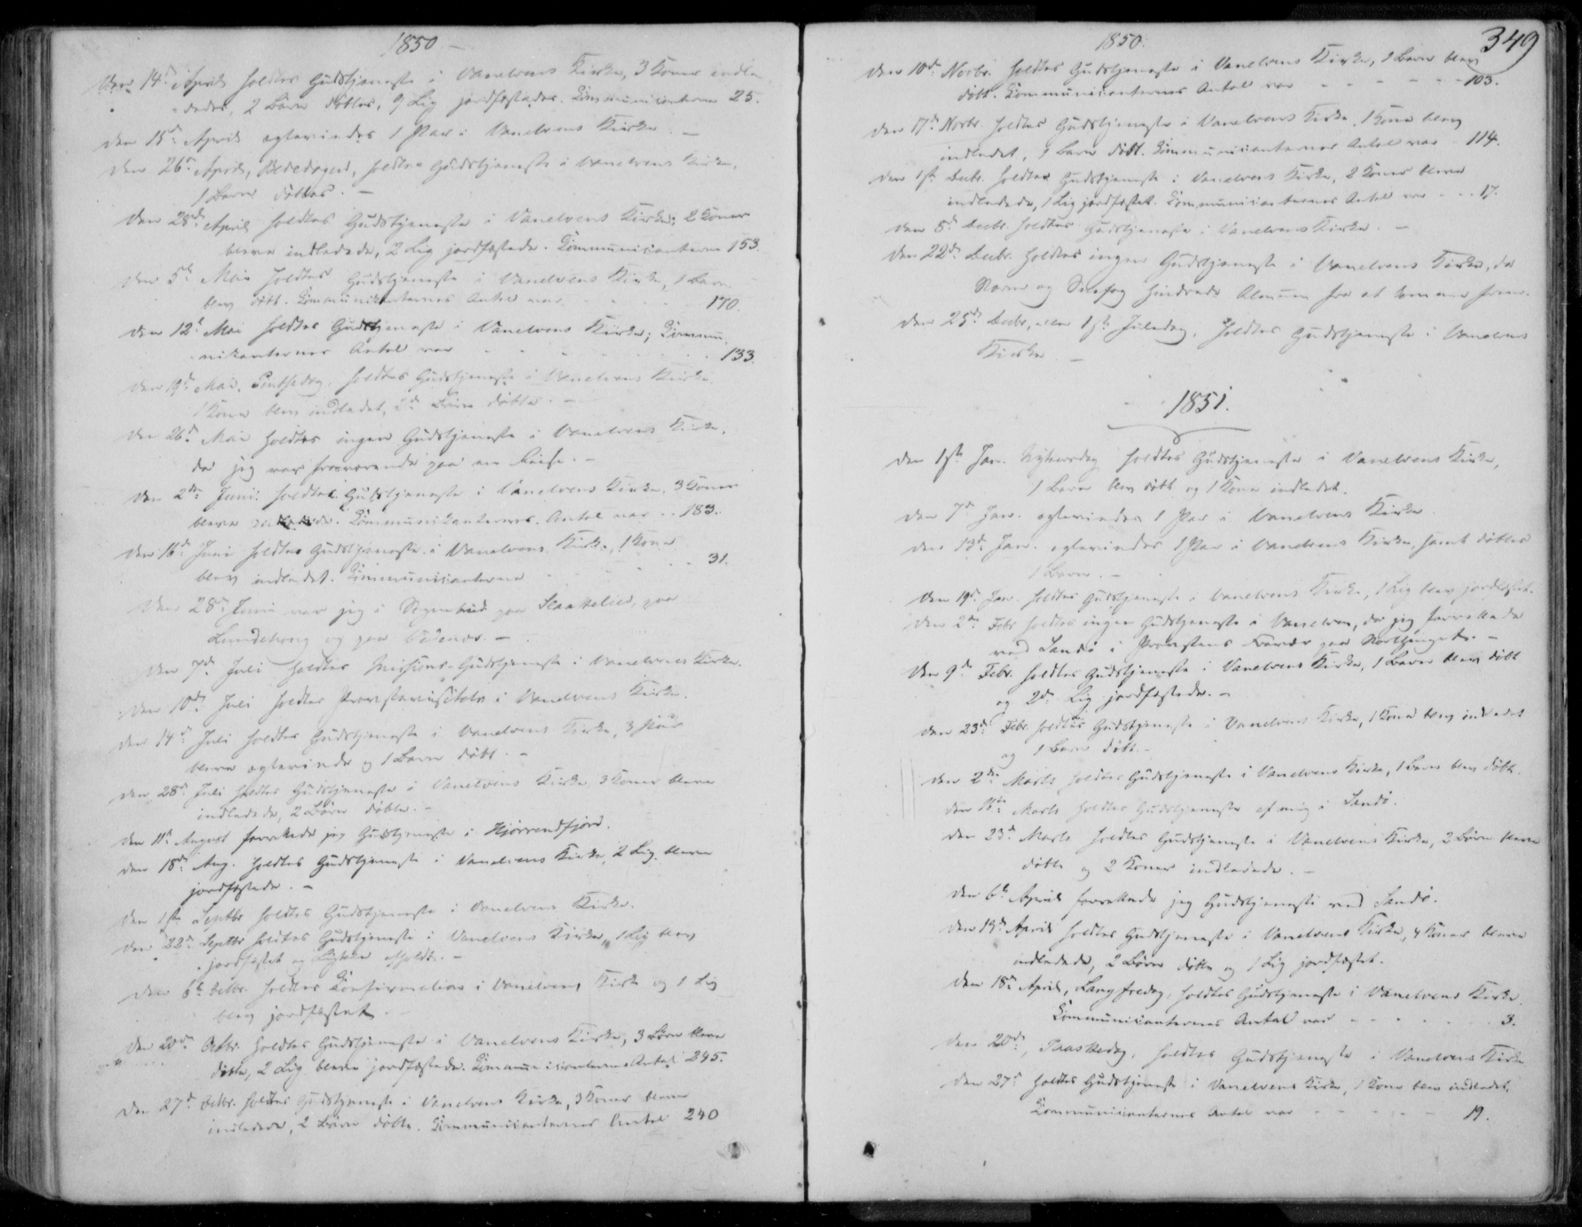 1850 -
Den 14de April holdtes Gudstjeneste i Vanelvens Kirke, 3 Koner indle
dedes, 2 Børn døbtes, 9 Lig jordfæstedes. Communicanterne 25.
Den 15de April egteviedes 1 Par i Vanelvens Kirke. -
Den 26de April, Bededagen, holdtes Gudstjeneste i Vanelvens Kirke,
1 Barn døbtes. -
Den 28de April holdtes Gudstjeneste i Vanelvens Kirke; 2 Koner
bleve indledede, 2 Lig jordfæstede. Communicanterne 153.
Den 5te Mai holdtes Gudstjeneste i Vanelvens Kirke, 1 Barn
blev døbt. Communicanternes Antal var 170.
Den 12te Mai holdtes Gudstjeneste i Vanelvens Kirke; Commu-
nikanternes Antal var 133.
Den 19de Mai, Pintsedag, holdtes Gudstjeneste i Vanelvens Kirke,
1 Kone blev indledet, 2de Børn døbte. -
Den 26de Mai holdtes ingen Gudstjeneste i Vanelvens Kirke,
da jeg var fraværende paa en Reise. -
Den 2den Juni holdtes Gudstjeneste i Vanelvens Kirke, 3 Koner
bleve indledede. Communikanternes Antal var - 183.
Den 16de Juni holdtes Gudstjeneste i Vanelvens Kirke, 1 Kone
blev indledet. Communicanterne 31.
Den 28de Juni var jeg i Sognebud paa
og paa -
Den 7de Juli holdtes Missions-Gudstjeneste i Vanelvens Kirke.
Den 10de Juli holdtes i Vanelvens Kirke.
Den 14de Juli holdtes Gudstjeneste i Vanelvens Kirke, 3 Par
bleve egteviede og 1 Barn døbt. -
Den 28de Juli holdtes Gudstjeneste i Vanelvens Kirke, 3 Koner bleve
indledede, 2 Børn døbte. -
Den 11te August forrettede jeg Gudstjeneste i Hjørrendfjord.
Den 18de Aug. holdtes Gudstjeneste i Vanelvens Kirke, 2 Lig bleve
jordfæstede. -
Den 1ste Septbr holdtes Gudstjeneste i Vanelvens Kirke.
Den 22de Septbr holdtes Gudstjeneste i Vanelvens Kirke, 1 Lig blev
jordfæstet og afholdt. -
Den 6te Octbr. holdtes Confirmation i Vanelvens Kirke og 1 Lig
blev jordfæstet.
Den 20de Octbr. holdtes Gudstjeneste i Vanelvens Kirke, 3 Børn bleve
døbte, 2 Lig bleve jordfæstede. Communicanternes Antal 245.
Den 27de Octbr. holdtes Gudstjeneste i Vanelvens Kirke, 3 Koner bleve
indledede, 2 Børn døbte. Communicanternes Antal 240
349
1850.
Den 10de Novbr. holdtes Gudstjeneste i Vanelvens Kirke, 1 Barn blev
døbt. Communicanternes Antal var - - - 103.
Den 17de Novbr. holdtes Gudstjeneste i Vanelvens Kirke, 1 Kone blev
indledet, 1 Barn døbt. Communicanternes Antal var - 114.
Den 1ste Decbr. holdtes Gudstjeneste i Vanelvens Kirke, 2 Koner bleve
indledede, 1 Lig jordfæstet. Communicanternes Antal var - - 17.
Den 8de Decbr. holdtes Gudstjeneste i Vanelvens Kirke. -
Den 22de Decbr. holdtes ingen Gudstjeneste i Vanelvens Kirke, da
Storm og hindrede Almuen fra at komme frem.
Den 25de Decbr, eller 1ste Juledag, holdtes Gudstjeneste i Vanelvens
Kirke. -
1851.
Den 1ste Jan. Nytaarsdag holdtes Gudstjeneste i Vanelvens Kirke,
1 Barn blev døbt og 1 Kone indledet.
Den 7de Jan. egteviedes 1 Par i Vanelvens Kirke
Den 13de Jan. egteviedes 1 Par i Vanelvens Kirke, samt døbtes
1 Barn. -
Den 19de Jan. holdtes Gudstjeneste i Vanelvens Kirke, 1 Lig blev jordfæstet.
Den 2den Febr holdtes ingen Gudstjeneste i Vanelven, da jeg forrettede
ved Sandø i Provstens Fravær paa Storthinget. -
Den 9de Febr. holdtes Gudstjeneste i Vanelvens Kirke, 1 Barn blev døbt
og 2de Lig jordfæstede. -
Den 23de Febr. holdtes Gudstjeneste i Vanelvens Kirke, 1 Kone blev indledet
og 1 Barn døbt. -
Den 2den Marts holdtes Gudstjeneste i Vanelvens Kirke, 1 Barn blev døbt.
Den 16de Marts holdtes Gudstjeneste af mig i Sandø.
Den 23de Marts holdtes Gudstjeneste i Vanelvens Kirke, 2 Børn bleve
døbte og 2 Koner indledede. -
Den 6te April forrettede jeg Gudstjeneste ved Sandø.
Den 13de April holdtes Gudstjeneste i Vanelvens Kirke, 4 Koner bleve
indledede, 2 Børn døbte og 1 Lig jordfæstet.
Den 18de April, Langfredag, holdtes Gudstjeneste i Vanelvens Kirke.
Communicanternes Antal var - - - - - 3.
Den 20de, Paaskedag, holdtes Gudstjeneste i Vanelvens Kirke
Den 27de holdtes Gudstjeneste i Vanelvens Kirke, 1 Kone blev indledet.
Communicanternes Antal var - - - - - 19.